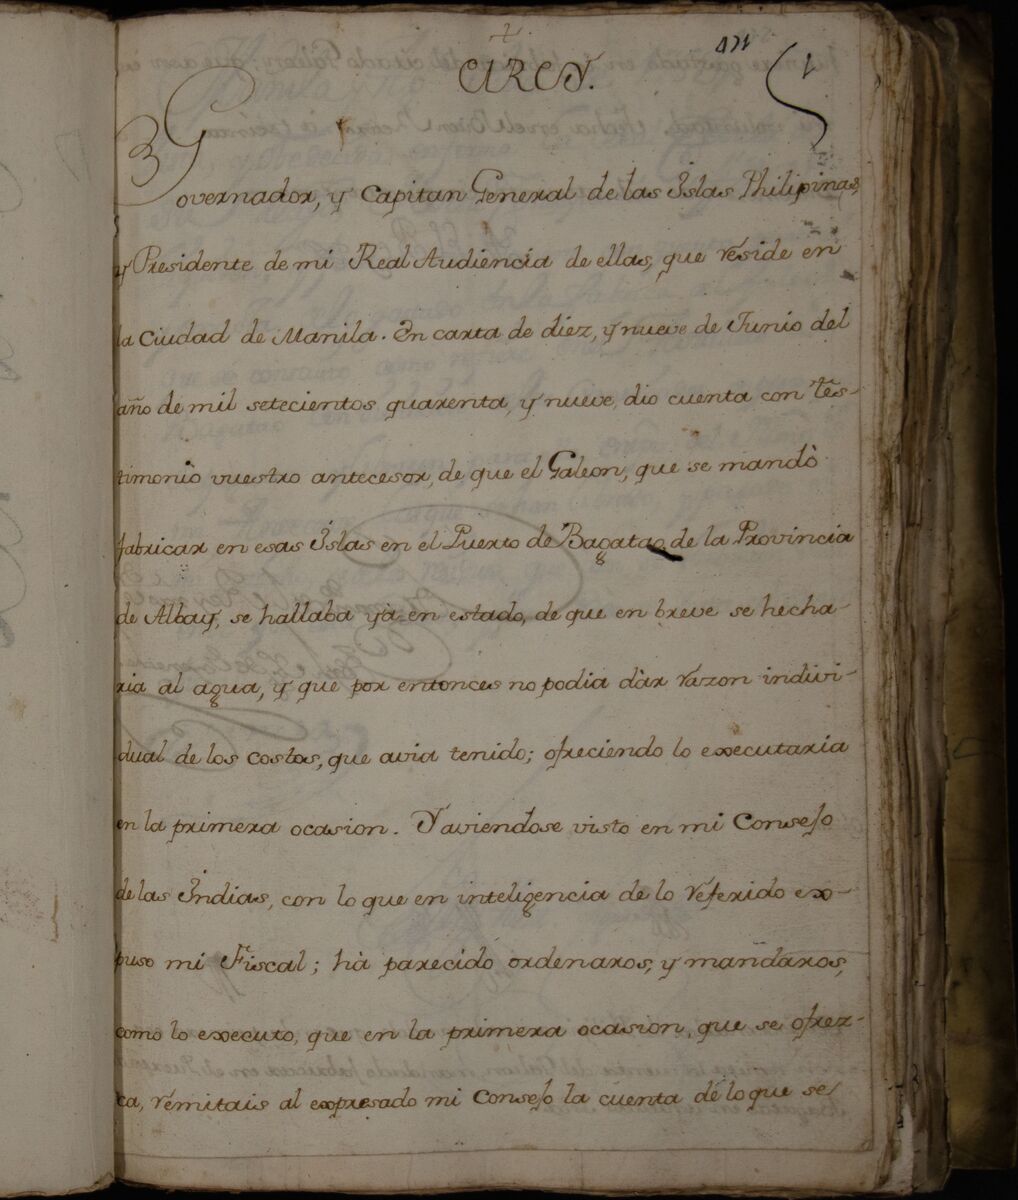 471
1
CIRCN.
Governador, y Capitan General de las Islas Philipinas,
y Presidente de mi Real Audiencia de ellas, que reside en
la Ciudad de Manila. En carta de diez, y nueve de Junio del
año de mil setecientos quarenta, y nueve, dio cuenta con tes-
timonio vuestro antecesor, de que el Galeon, que se mandò
fabricar en esas Islas en el Puerto de Bagatao de la Provincia
de Albay, se hallaba yà en estado, de que en breve se hecha-
ria al agua, y que por entonces no podia dàr razon indivi-
dual de los costos, que avia tenido; ofreciendo lo executaria
en la primera ocasion. Y aviendose visto en mi Consejo
de las Indias, con lo que en inteligencia de lo referido ex-
puso mi Fiscal; hà parecido ordenaros, y mandaros,
como lo executo, que en la primera ocasion, que se ofrez-
ca, remitais al expresado mi Consejo la cuenta de lo que se